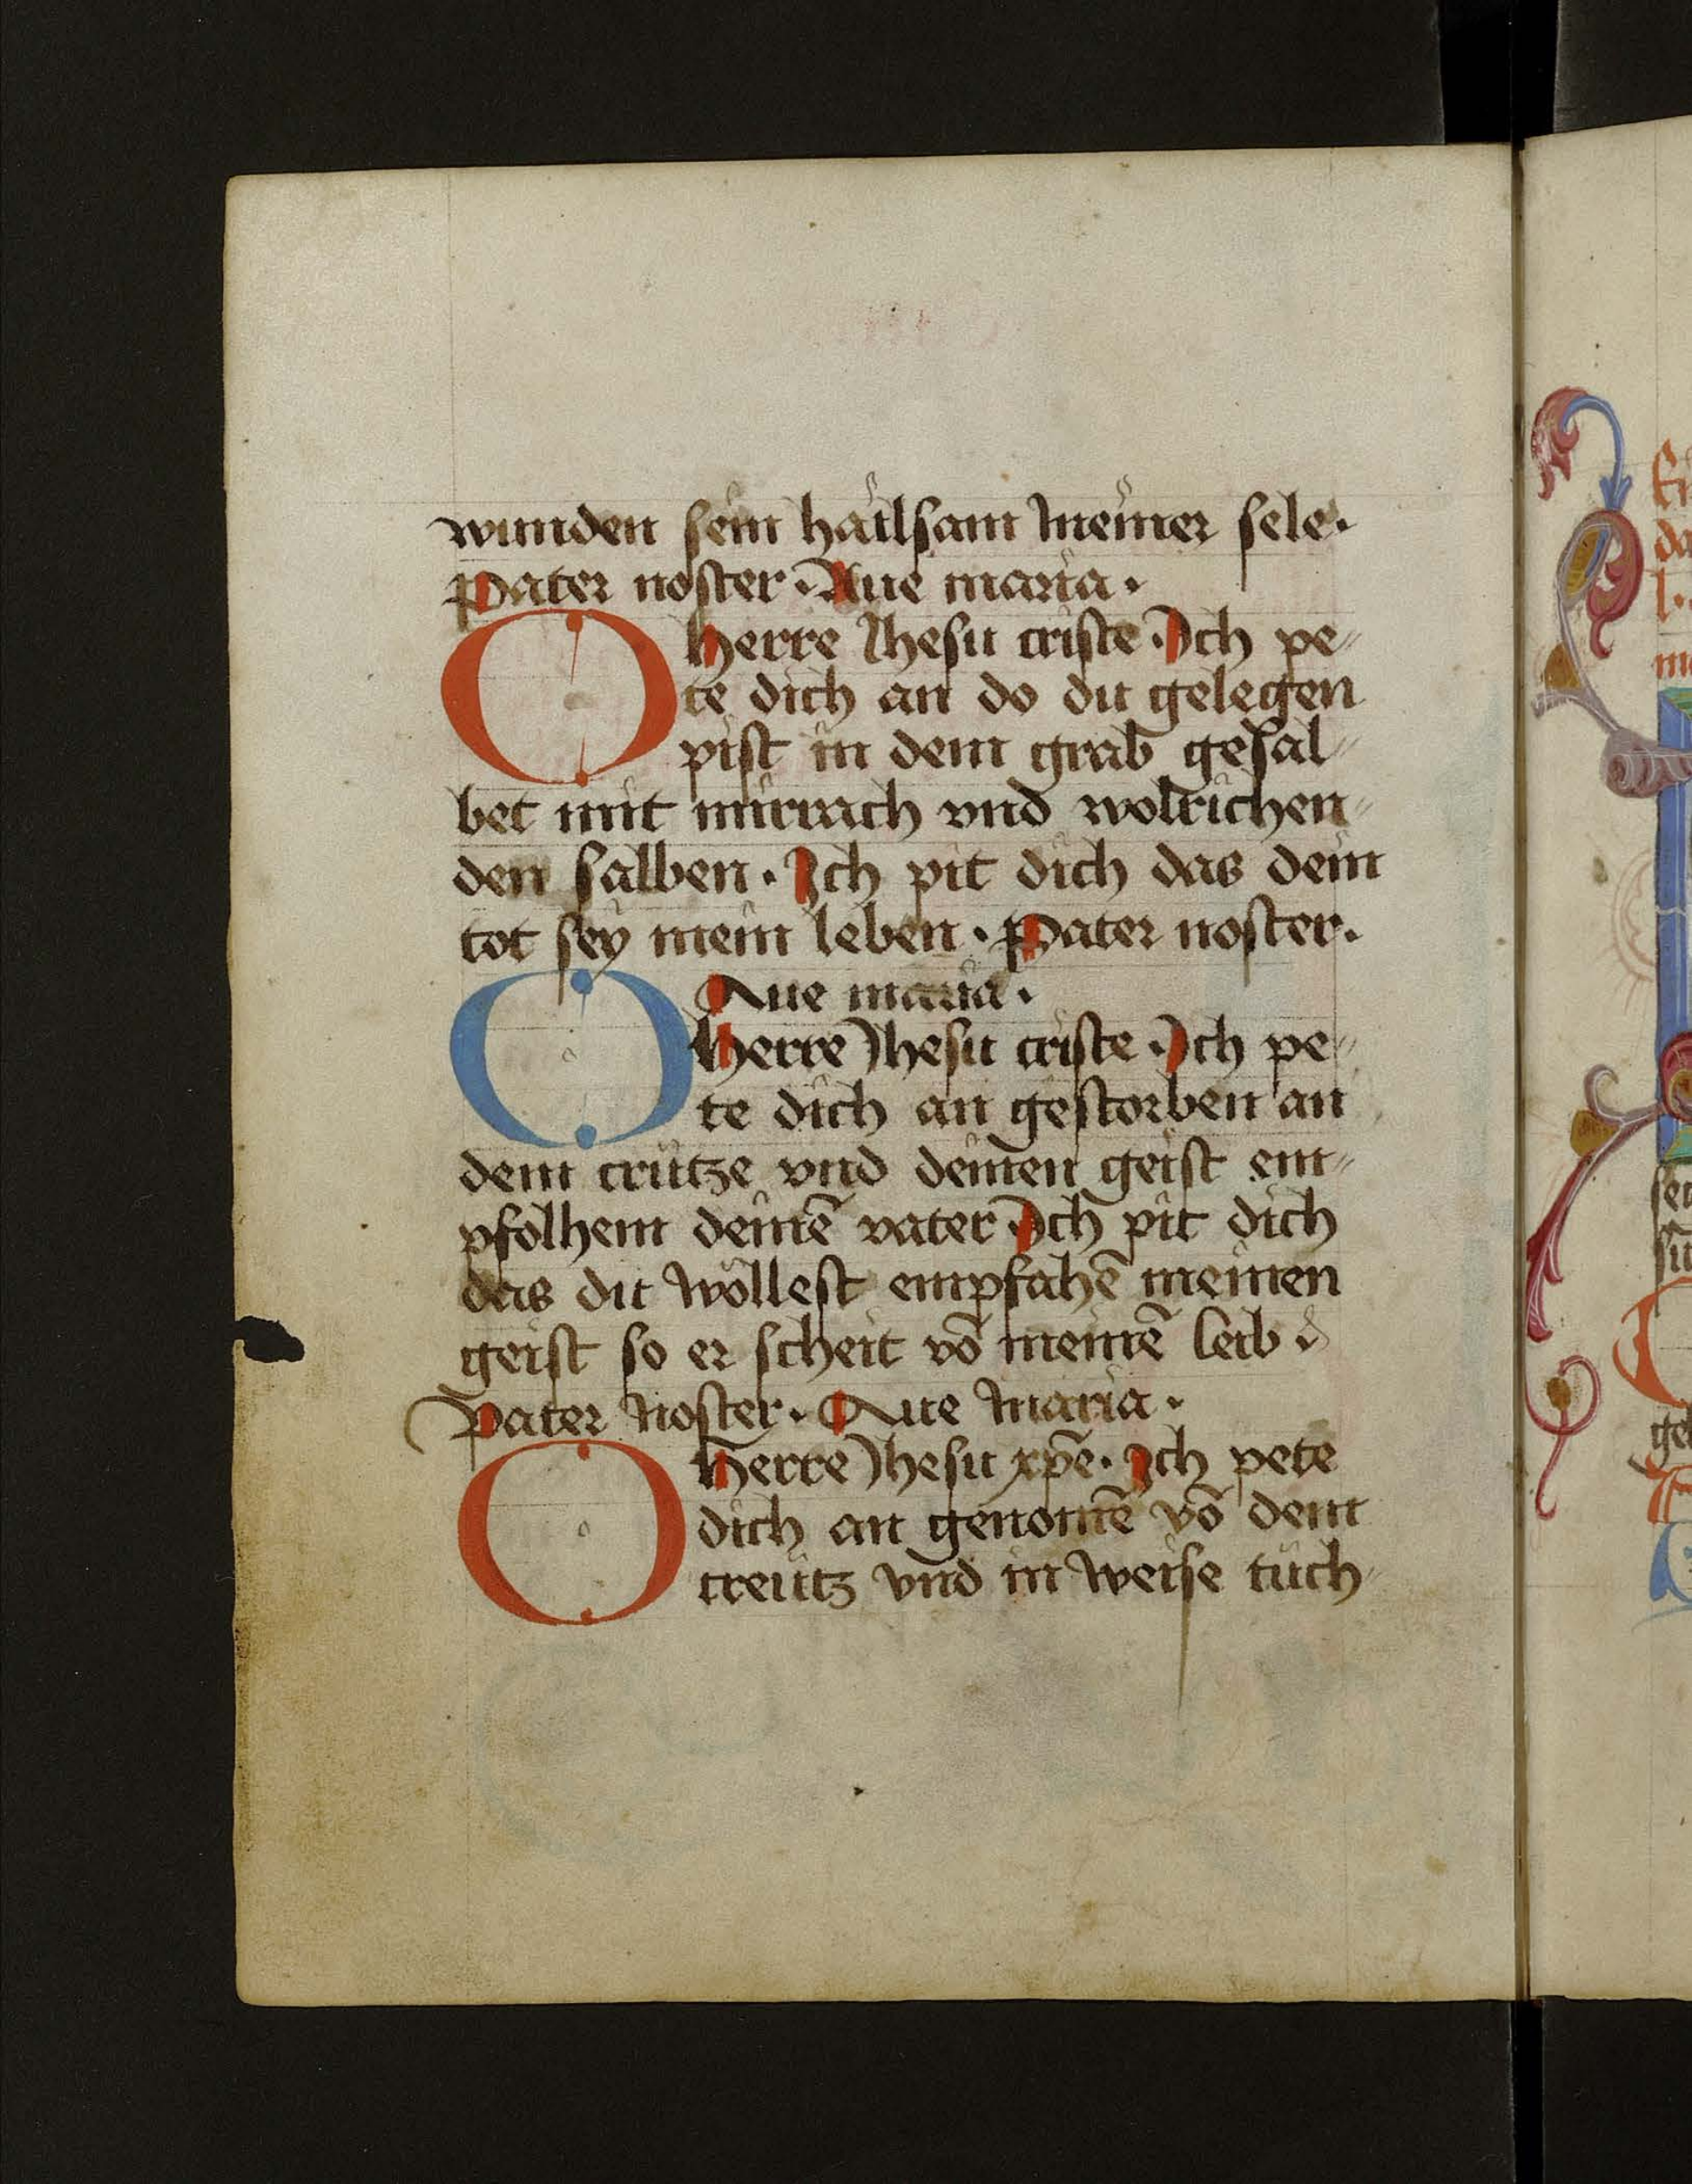 wunden sein hailsam meiner sele.
Pater noster. Aue maria.
O herre Jhesu criste. Jch pe〃
te dich an do du gelegen
pist in dem grab gesal〃
bet mit mirrach vnd wolrichen〃
den salben. Jch pit dich das dein
tot sey mein leben. Pater noster.
Aue maria.
O herre Jhesu criste. Jch pe〃
te dich an gestorben an
dem crütze vnd deinen geist em〃
pfolhem deinē vater. Jch pit dich
das du wöllest empfahē meinen
geist so er scheit vō meinē leib.
Pater noster. Aue maria.
O herre Jhesu xp̄e. Jch pete
dich an genomē vō dem
creütz vnd in weise tüch